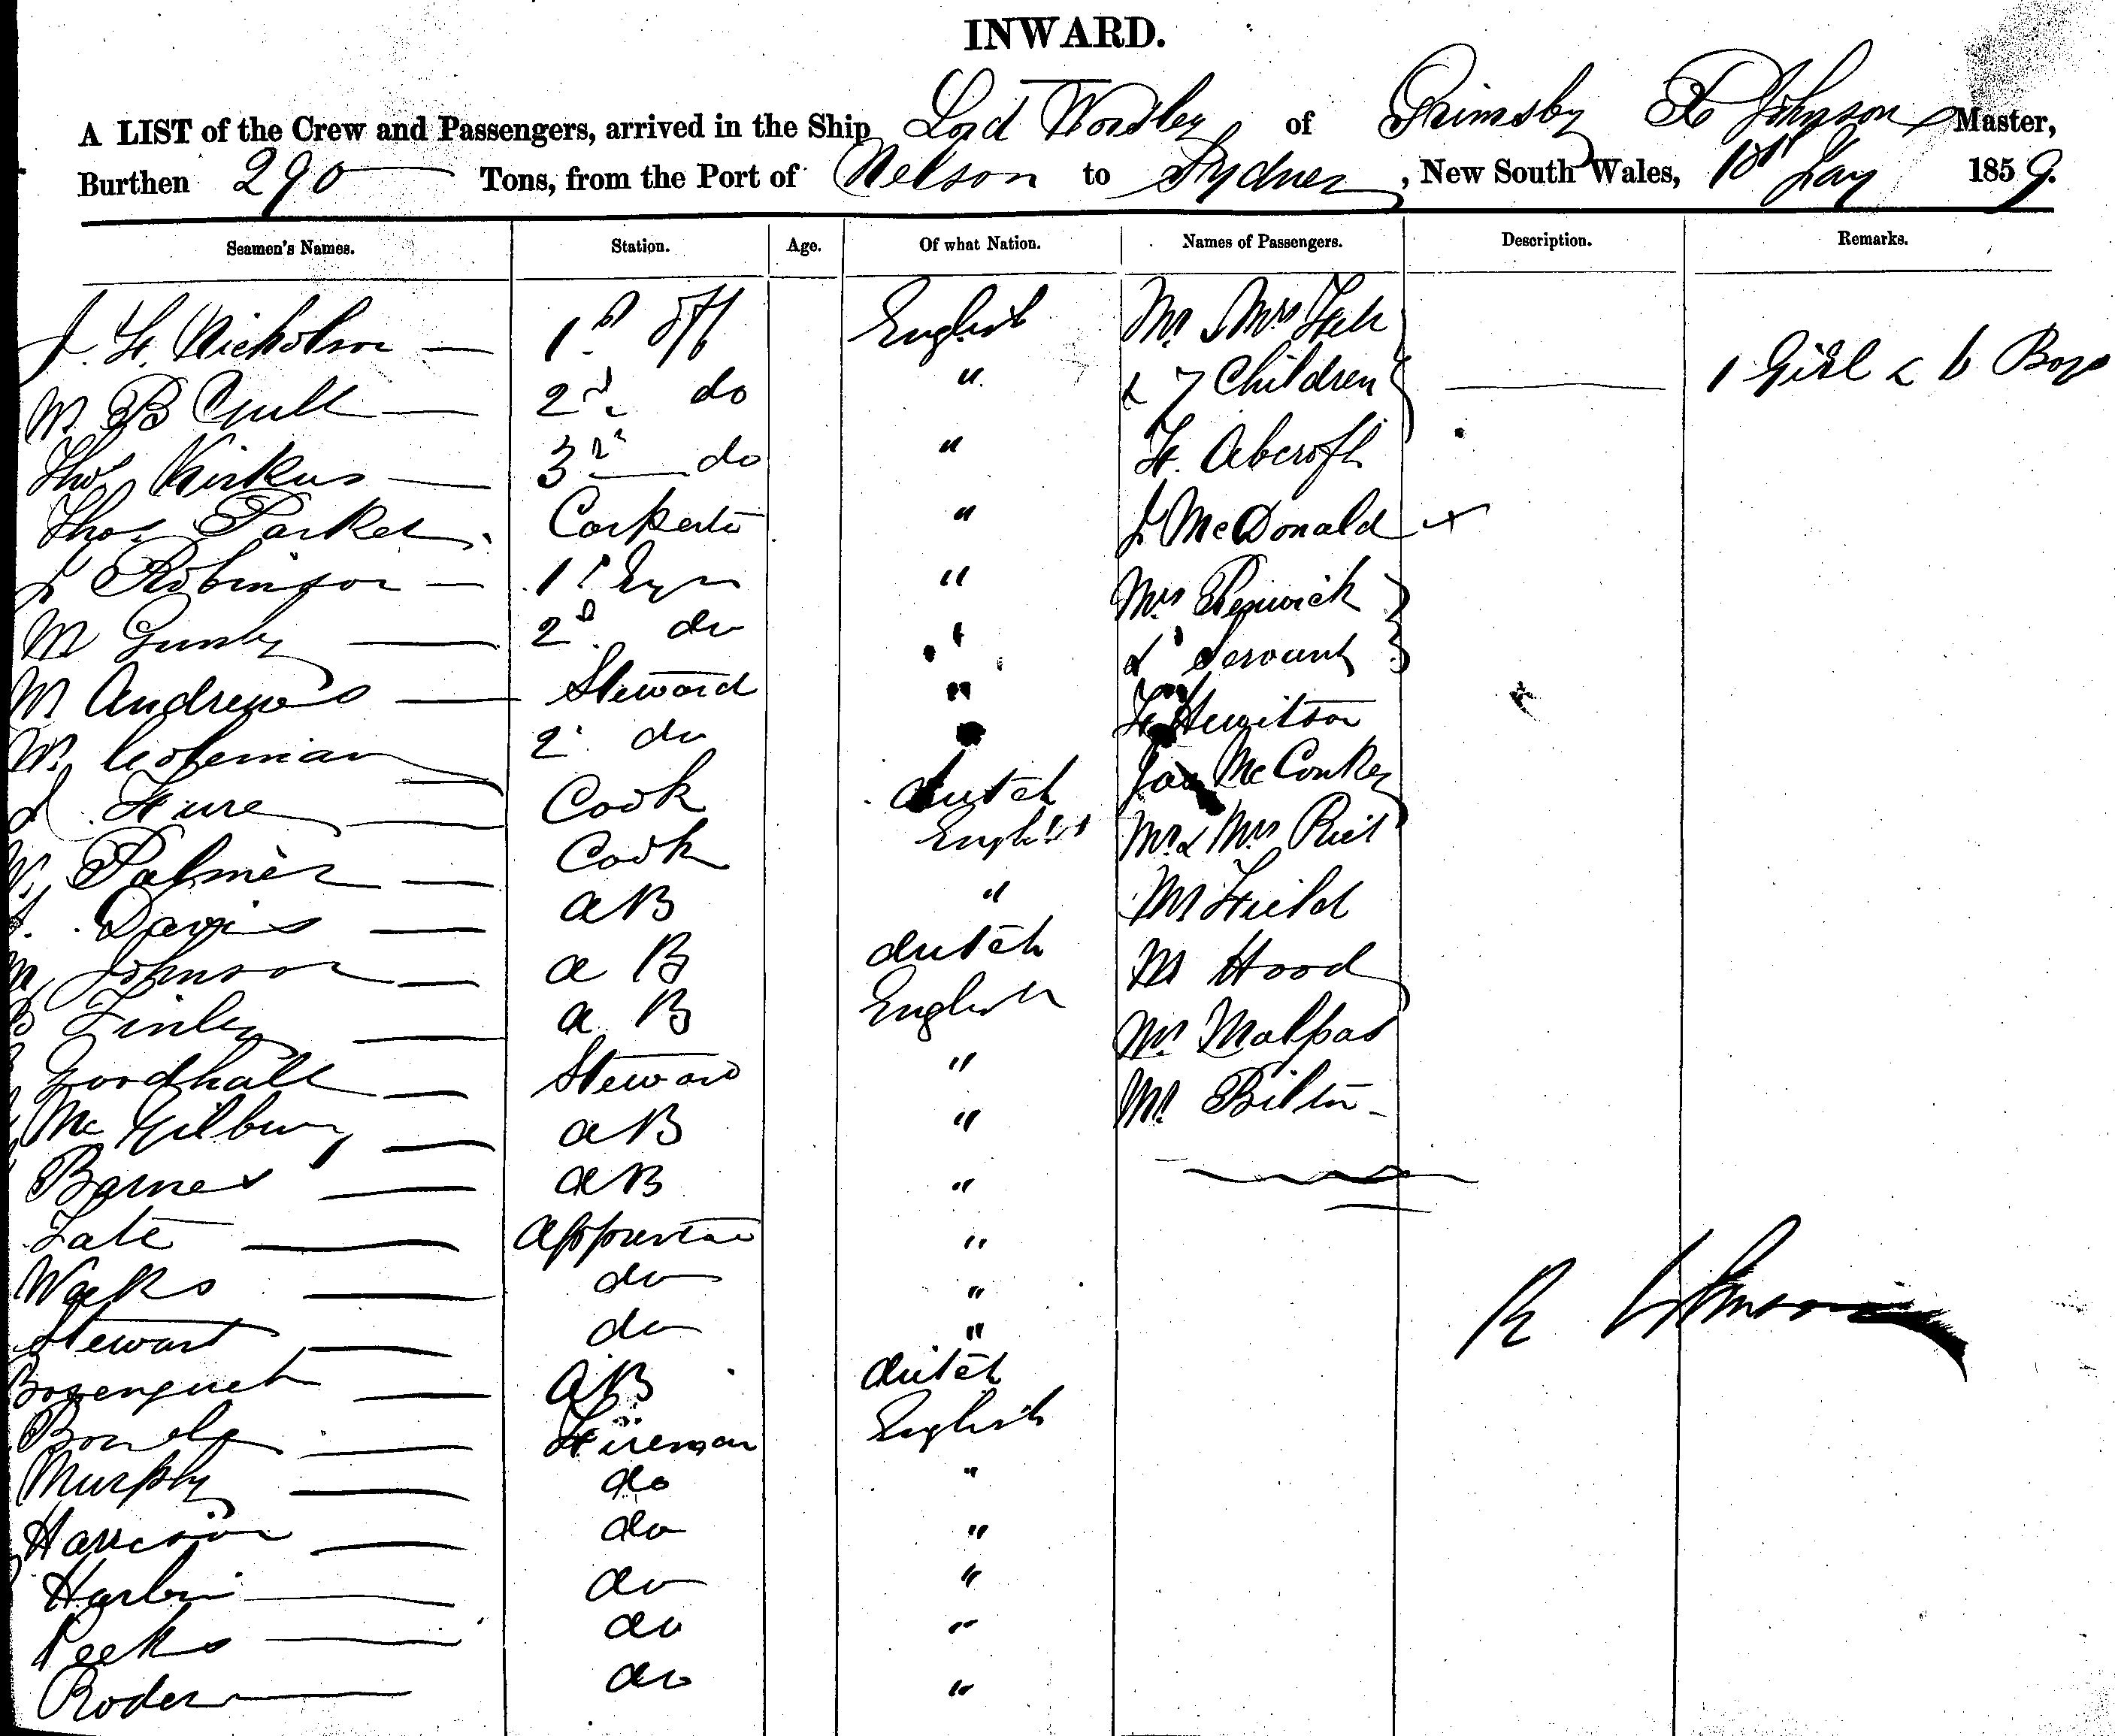 INWARD.
A LIST of the Crew and Passengers, arrived in the Ship Lord Worsley of Grimsby Johnson Master,
Burthen 290 Tons, from the Port of Nelson to Sydney, New South Wales, 1859.
Seamen's Names. Station. Age. Of what Nation. Names of Passengers. Description. Remarks.
J. H. Nicholson 1st Off English Mr & Mrs
W. B Cull 2nd do " & 7 Children 1 Girl & 6 Boys
Thos Kirkus 3rd do " H. Abcroft
Thos Parker Carpenter " J McDonald
J Robinson 1st Eng " Mrs Renwick
M 2d do " & Servant
W Andrews Steward " Hewitson
W. Coleman 2d do " Jas McConkey
Cook dutch Mr & Mrs
W. Palmer Cook English Mr Field
Davis AB " Mr Hood
Johnson AB dutch Mr Malpas
Finley AB English Mr Bilton
Goodhall Steward "
Mc Gilbury AB "
Barnes AB "
Tate Apprentice "
Weeks do "
Stewart do "
Bosenquet AB dutch
Fireman English
Murphy do "
Harrison do "
do "
Peeks do "
Roder do "
R Johnson